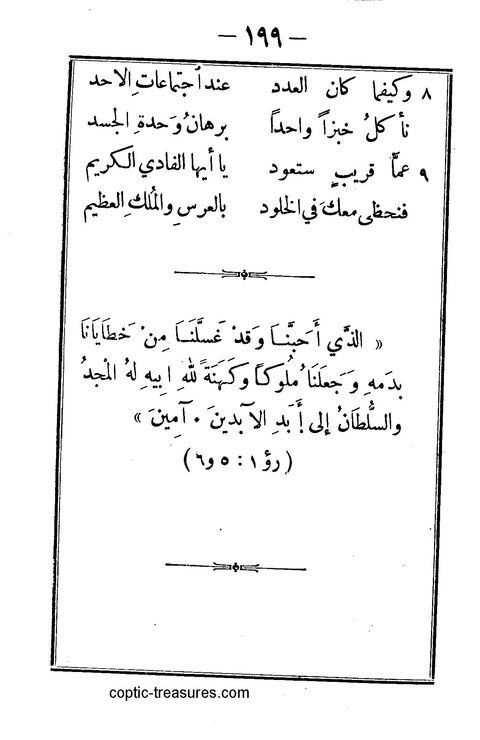 — ١٩٩ —
٨ وكيفما كان العدد عند اجتماعات الاحد
نأكلُ خبزاً واحداً برهانُ وَحدةِ الجسد
٩ عمَّا قريبٍ ستعود يا أيها الفادي الكريم
فنحظى معكَ في الخلود بالعرسِ والمُلكِ العظيم
« الذَّي أَحبَّنَا وَقدْ غسَّلَنَا مِنْ خطَايَانَا
بدمهِ وَجعلَنَا مُلوكاً وَكهنَةً للهِ ابيهِ لهُ المْجدُ
والسُّلطَانُ إلى أَبَدِ الآبدينَ ٠ آمِينَ »
(رؤ ١ : ٥ و٦)
coptic-treasures.com